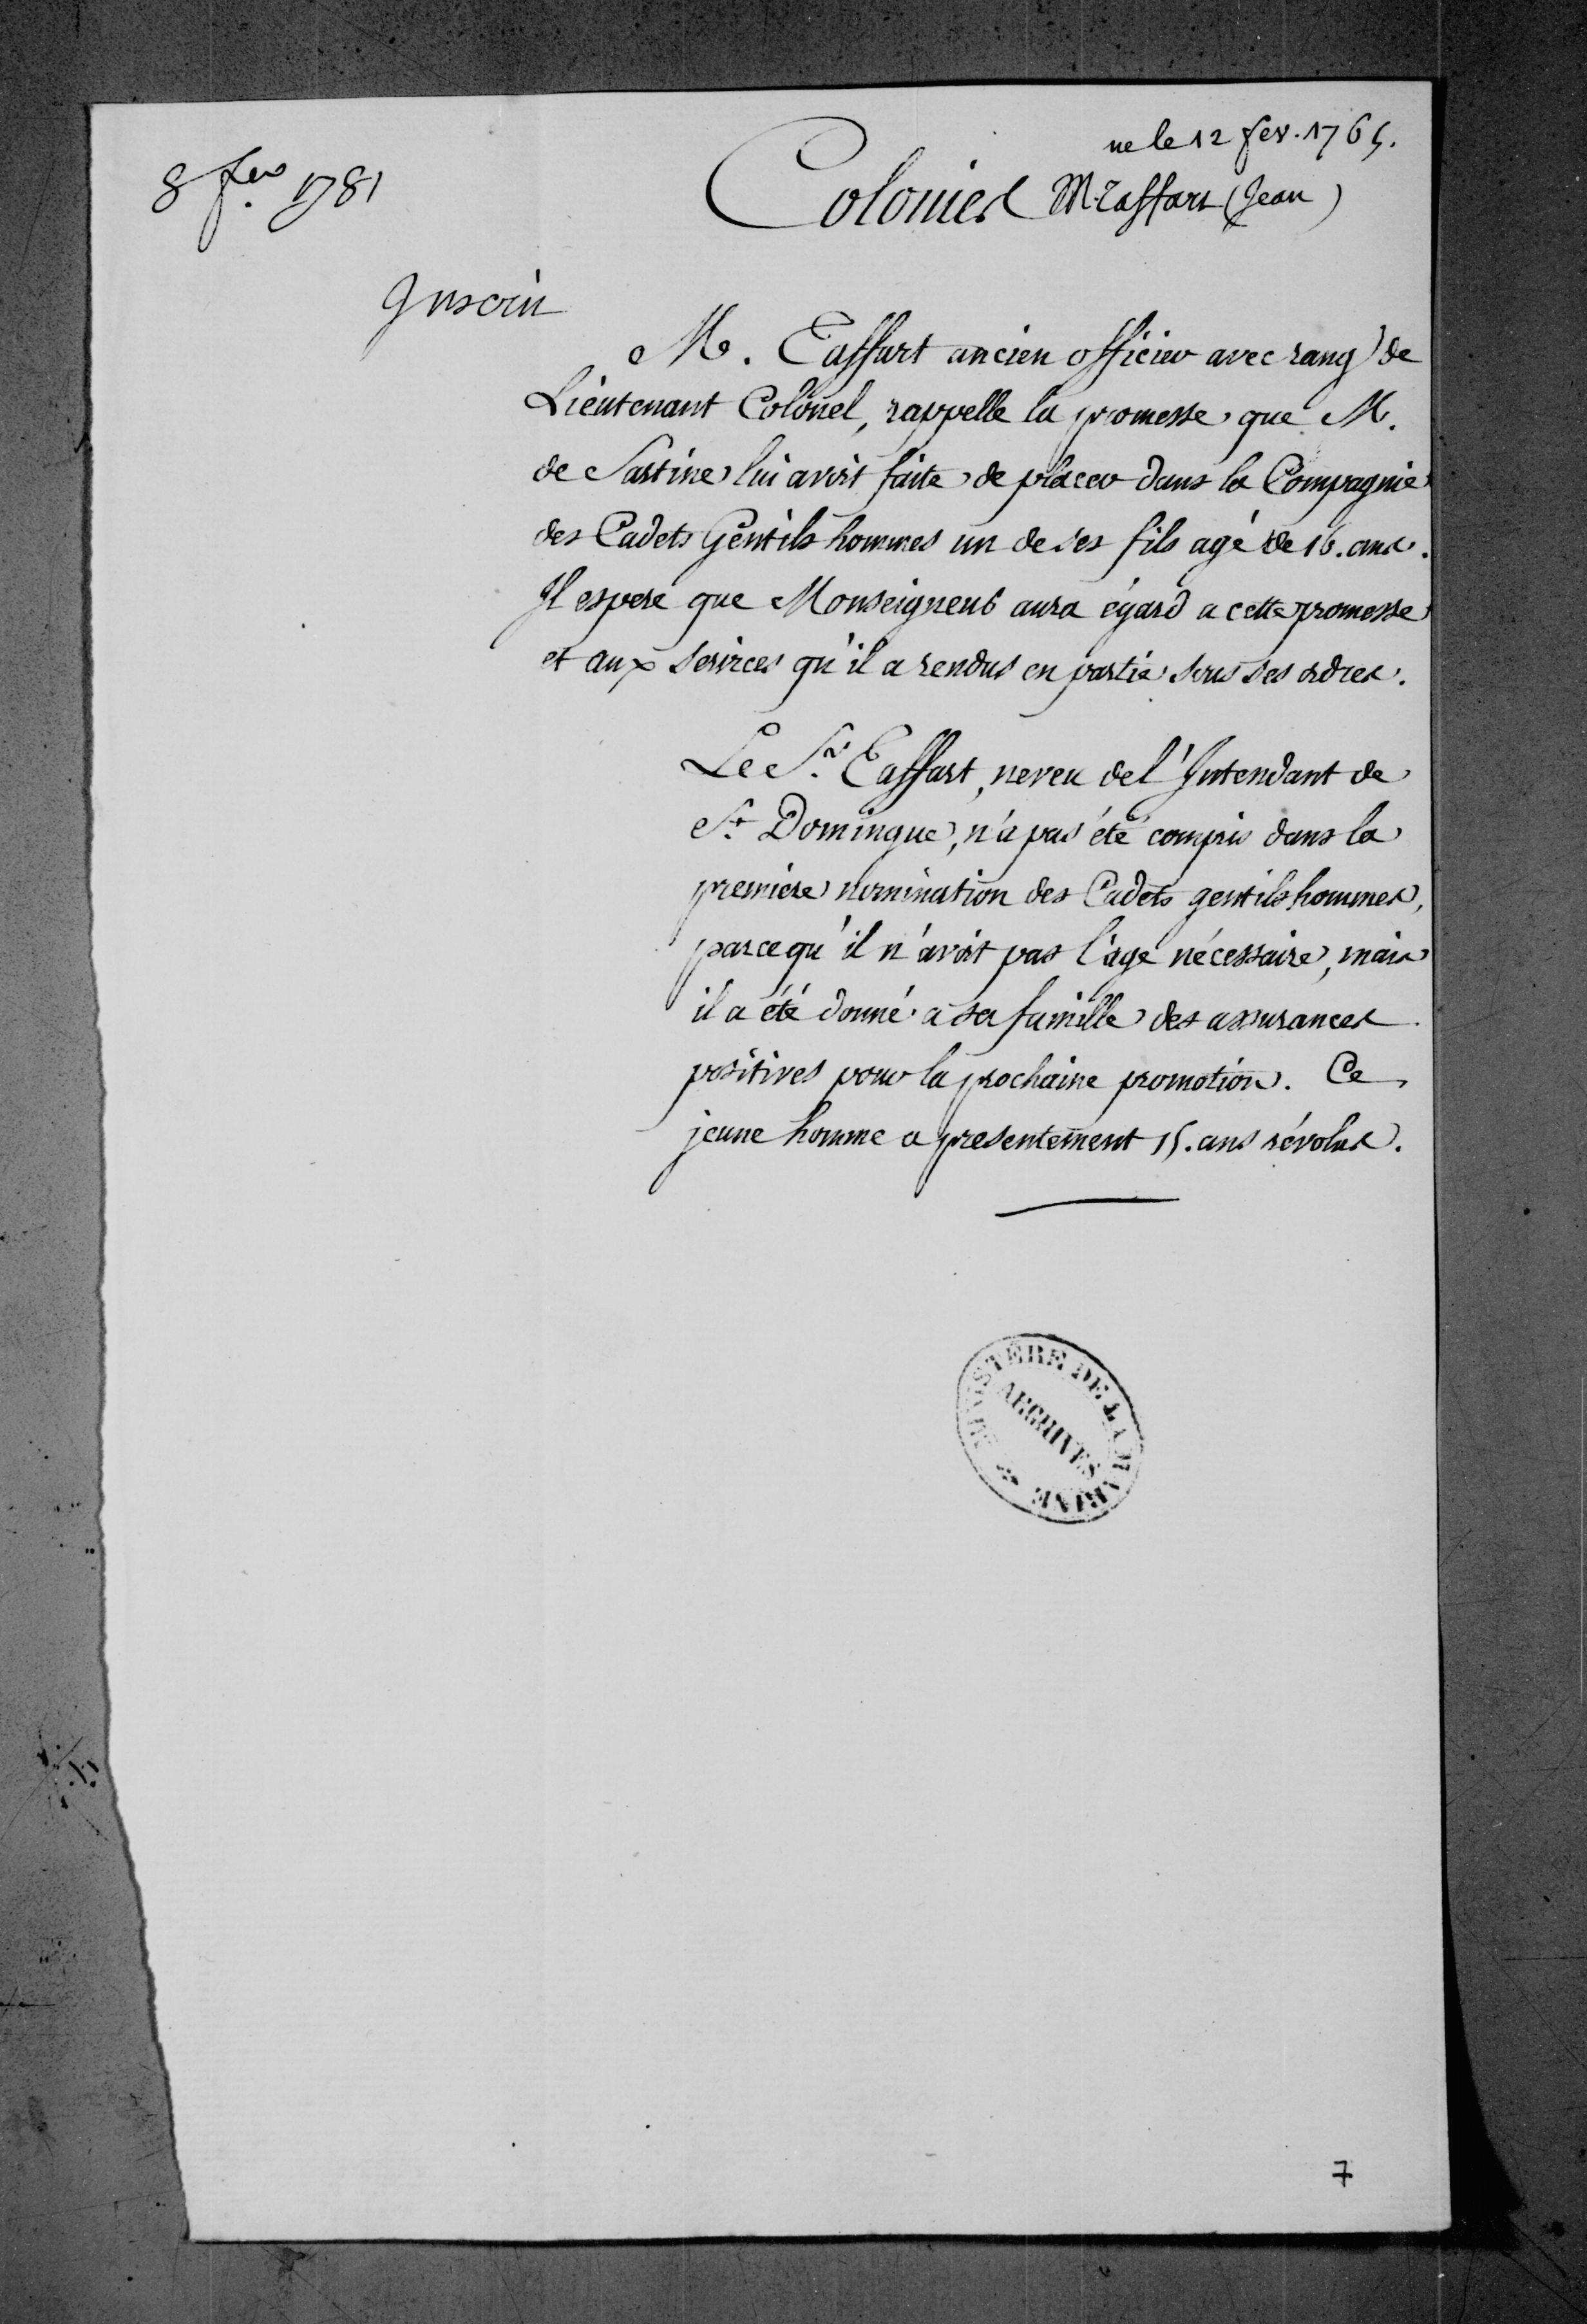 né le 12 fev. 1765.
8 fer. 1781
Colonies M. Taffart (Jean)
Inscrit
M. Taffart ancien officier avec rang de
Lieutenant Colonel, rappelle la promesse que M.
de Sartine lui avoit faite de placer dans la Compagnie
des Cadets Gentils hommes un de ses fils agé de 16. ans.
Il espere que Monseigneur aura égard a cette promesse
et aux services qu'il a rendus en partie sous ses ordres.
Le Sr. Taffart, neveu de l'Intendant de
St. Domingue, n'a pas été compris dans la
premiere nomination des Cadets gentilshommes,
parcequ'il n'avoit pas l'age nécessaire, mais
il a été donné a sa famille des assurances
positives pour la prochaine promotion. Ce
jeune homme a presentement 15. ans révolus.
MINISTÈRE DE LA MARINE
ARCHIVES
7